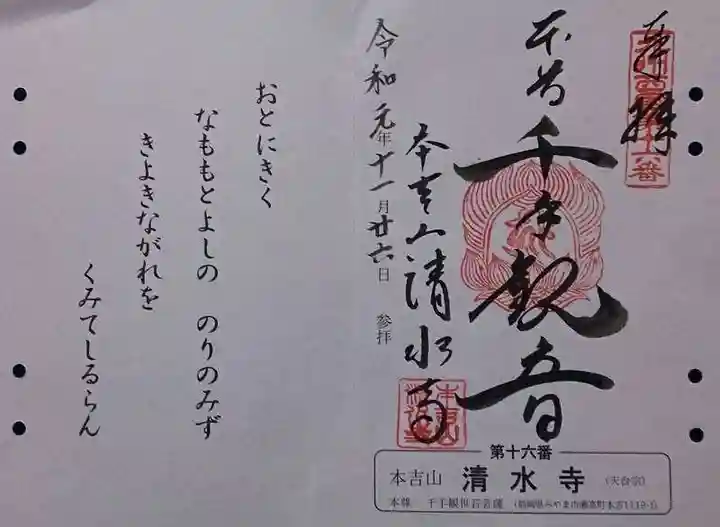 奉拝
本尊千手観音
本吉山清水寺
令和元年十一月廿六日 参拝
第十六番
本吉山 清水寺 (天台宗)
本尊 千手観世音菩薩 (福岡県みやま市瀬高町本吉1119-1)
おとにきく
なももとよしの のりのみず
きよきながれを
くみてしるらん